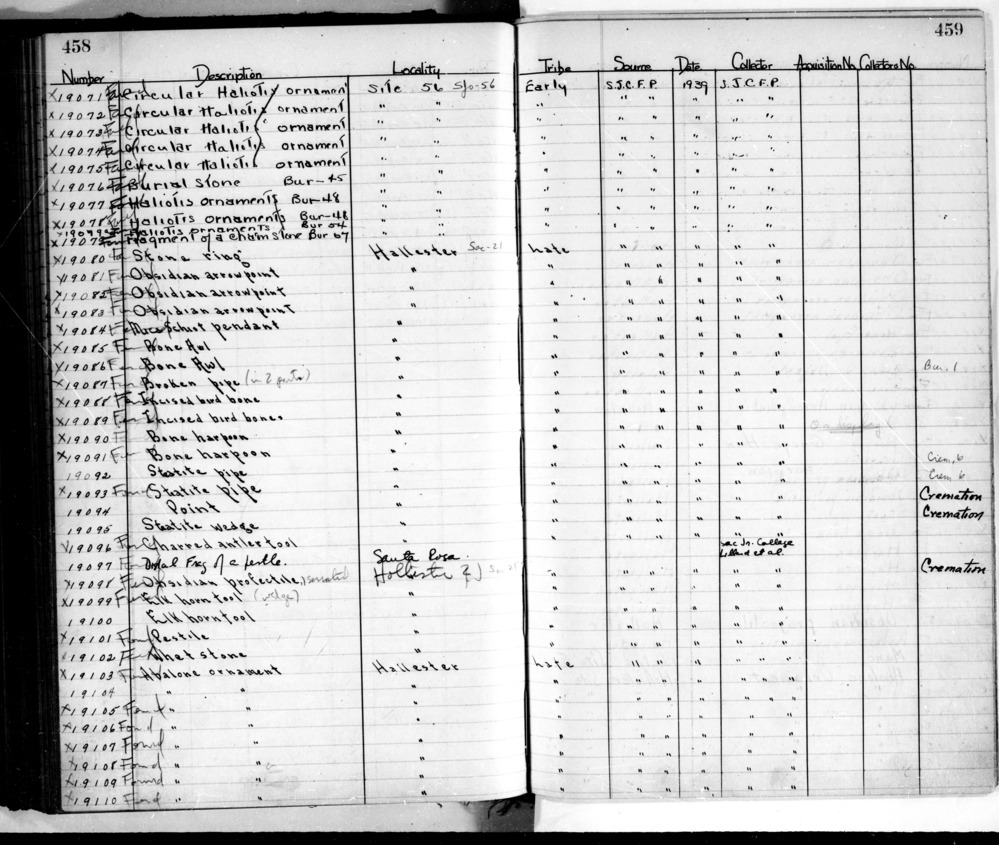 458
459
Number Description Locality Tribe Source Date Collector Acquisition No. Collectors No.
X19071 Circular Haliotis ornament Site 56 Sjo-56 Early S.J.C.F.P. 1939 S.J.C.F.P.
X19072 Circular Haliotis ornament " " " " " " " "
X19073 Circular Haliotis ornament " " " " " " " "
X19074 Circular Haliotis ornament " " " " " " " "
X19075 Circular Haliotis ornament " " " " " " " "
X19076 Burial Stone Bur-45 " " " " " " " "
X19077 Haliotis ornaments Bur-48 " " " " " " " "
X19078 Haliotis ornaments Bur-48 " " " " " " " "
Haliotis ornaments Bur 54 " "
X19079 Fragment of a charmstone Bur 67
X19080 Stone ring Hallester Sac-21 Late " " " " "
X19081 Obsidian arrowpoint " " " " " " "
X19082 Obsidian arrowpoint " " " " " "
X19083 Obsidian arrowpoint " " " " " "
X19084 Mica Schist pendant " " " " " " "
X19085 Bone Awl " " " " " " "
X19086 Bone Awl " " " " " " "
X19087 Broken pipe (in 2 parts) " " " " " " " Bur. 1
X19088 Incised bird bone " " " " " " "
X19089 Incised bird bones " " " " " " "
X19090 Bone harpoon " " " " " " "
X19091 Bone harpoon " " " " " " "
19092 Statite pipe " " " " " " " Crem. 6
X19093 Found Statite pipe " " " " " " " Crem 6
19094 Point " " " " " " " Cremation
19095 Statite wedge " " " " " " " Cremation
X19096 Charred antler tool " " " " " " "
19097 Distal Frag of a pestle. Santa Rosa. Sac Jr. College Lillard et al.
X19098 Obsidian projectile, serrated Hollister " " " " " " Cremation
X19099 Elk horn tool (wedge) " " " " " " "
19100 Elk horn tool " " " " " " "
X19101 Found Pestile " " " " " " "
X19102 Whet stone " " " " " " "
X19103 Abalone ornament Hallester Late " " " " "
19104 " " " " " " " " "
X19105 Found " " " " " " " "
X19106 Found " " " " " " " "
X19107 Found " " " " " " " " "
X19108 Found " " " " " " " " "
X19109 Found " " " " " " " " "
X19110 Found " " " " " " " " "